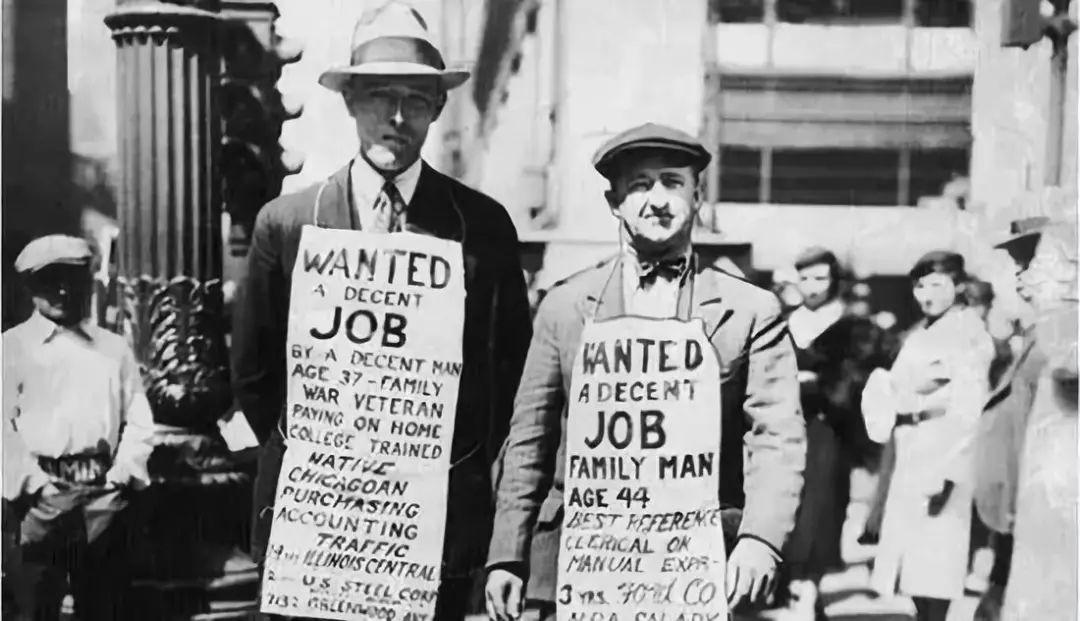 WANTED
A DECENT
JOB
BY A DECENT MAN
AGE 37-FAMILY
WAR VETERAN
PAYING ON HOME
COLLEGE TRAINED
NATIVE
CHICAGOAN
PURCHASING
ACCOUNTING
TRAFFIC
ILLINOIS CENTRAL
U.S. STEEL CORP
7132 GREENWOOD AVE
WANTED
A DECENT
JOB
FAMILY MAN
AGE 44
BEST REFERENCE
CLERICAL OR
MANUAL EXPR-
3 YRS. FORD CO
SALARY